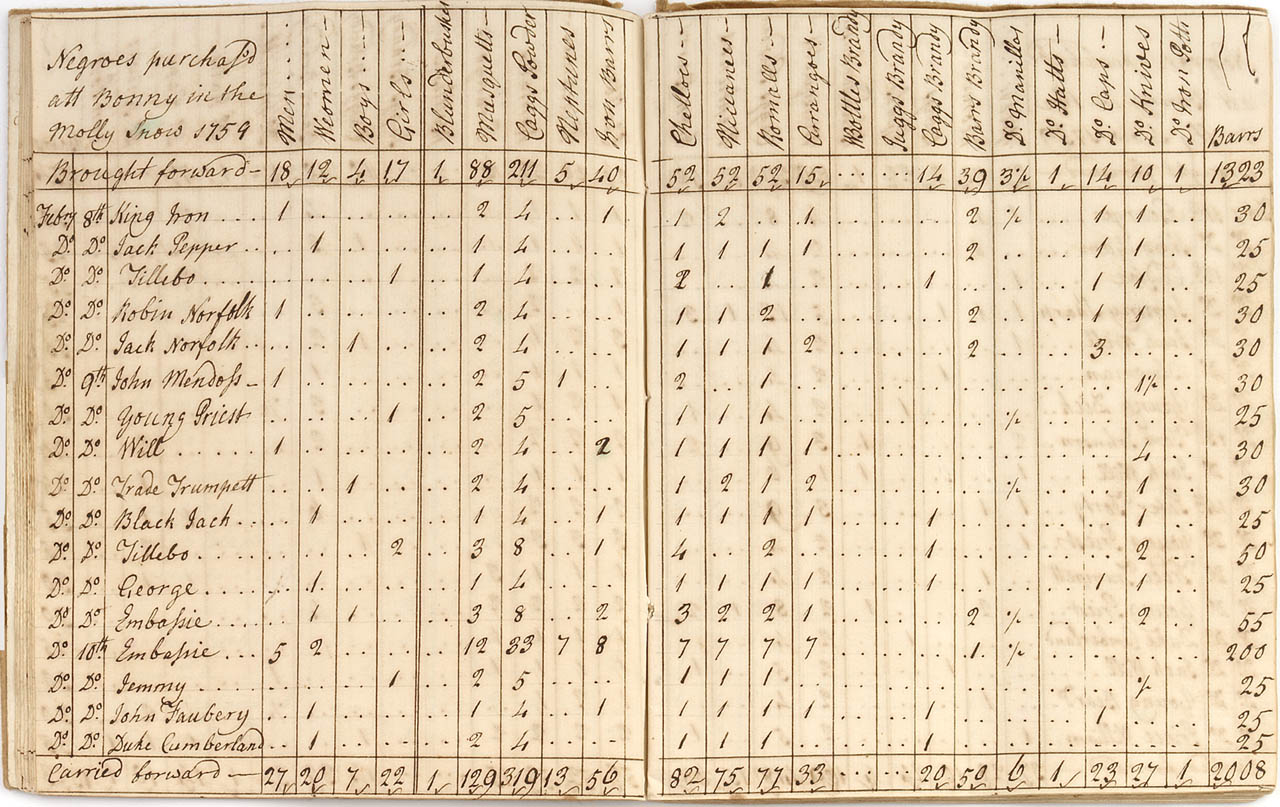 Negroes purchas'd
att Bonny in the
Molly Snow 1759
Men Women Boys Girls Blunderbuses Musquetts Caggs Powder Nephunes Iron Barrs Chelloes Niccanes Romalls Corangos Bottles Brandy Juggs Brandy Caggs Brandy Barrs Brandy Do. Manilles Do. Hatts Do. Caps Do. Knives Do. Iron Potts Barrs
Brought forward 18 12 4 17 1 88 211 5 40 52 52 52 15 14 39 3½ 1 14 10 1 1323
Febry 8th King Iron 1 2 4 1 1 2 1 2 ½ 1 1 30
Do. Do. Jack Pepper 1 1 4 1 1 1 1 2 1 1 25
Do. Do. Tillebo 1 1 4 2 1 1 1 1 25
Do. Do. Robin Norfolk 1 2 4 1 1 2 2 1 1 30
Do. Do. Jack Norfolk 1 2 4 1 1 1 2 2 3 30
Do. 9th John Mendoss 1 2 5 1 2 1 1½ 30
Do. Do. Young Priest 1 2 5 1 1 1 ½ 25
Do. Do. Will 1 2 4 2 1 1 1 1 4 30
Do. Do. Trade Trumpett 1 2 4 1 2 1 2 ½ 1 30
Do. Do. Black Jack 1 1 4 1 1 1 1 1 1 1 25
Do. Do. Tillebo 2 3 8 1 4 2 1 2 50
Do. Do. George 1 1 4 1 1 1 1 1 1 1 25
Do. Do. Embassie 1 1 3 8 2 3 2 2 1 2 ½ 2 55
Do. 10th Embassie 5 2 12 33 7 8 7 7 7 7 1 ½ 200
Do. Do. Jemmy 1 2 5 1 1 1 ½ 25
Do. Do. John Faubery 1 1 4 1 1 1 1 1 1 1 25
Do. Do. Duke Cumberland 1 2 4 1 1 1 1 25
Carried forward 27 20 7 22 1 129 319 13 56 82 75 77 33 20 50 6 1 23 27 1 2008